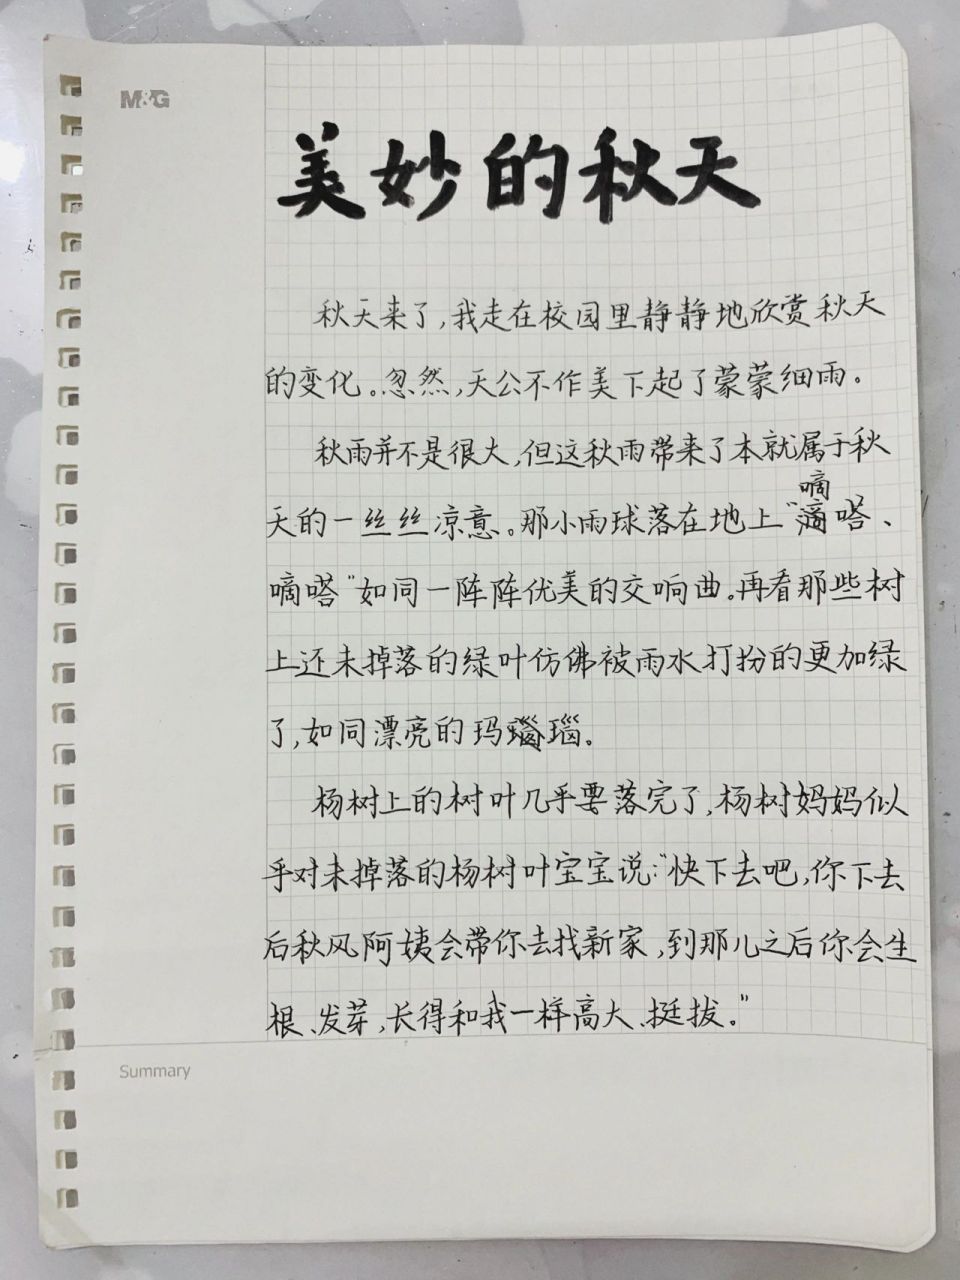 M&G
美妙的秋天
秋天来了,我走在校园里静静地欣赏秋天
的变化。忽然,天公不作美下起了蒙蒙细雨。
秋雨并不是很大,但这秋雨带来了本就属于秋
嘀
天的一丝丝凉意。那小雨球落在地上"滴嗒、
嘀嗒"如同一阵阵优美的交响曲。再看那些树
上还未掉落的绿叶仿佛被雨水打扮的更加绿
了,如同漂亮的玛瑙。
杨树上的树叶几乎要落完了,杨树妈妈似
乎对未掉落的杨树叶宝宝说:"快下去吧,你下去
后秋风阿姨会带你去找新家,到那儿之后你会生
根、发芽,长得和我一样高大、挺拔。"
Summary